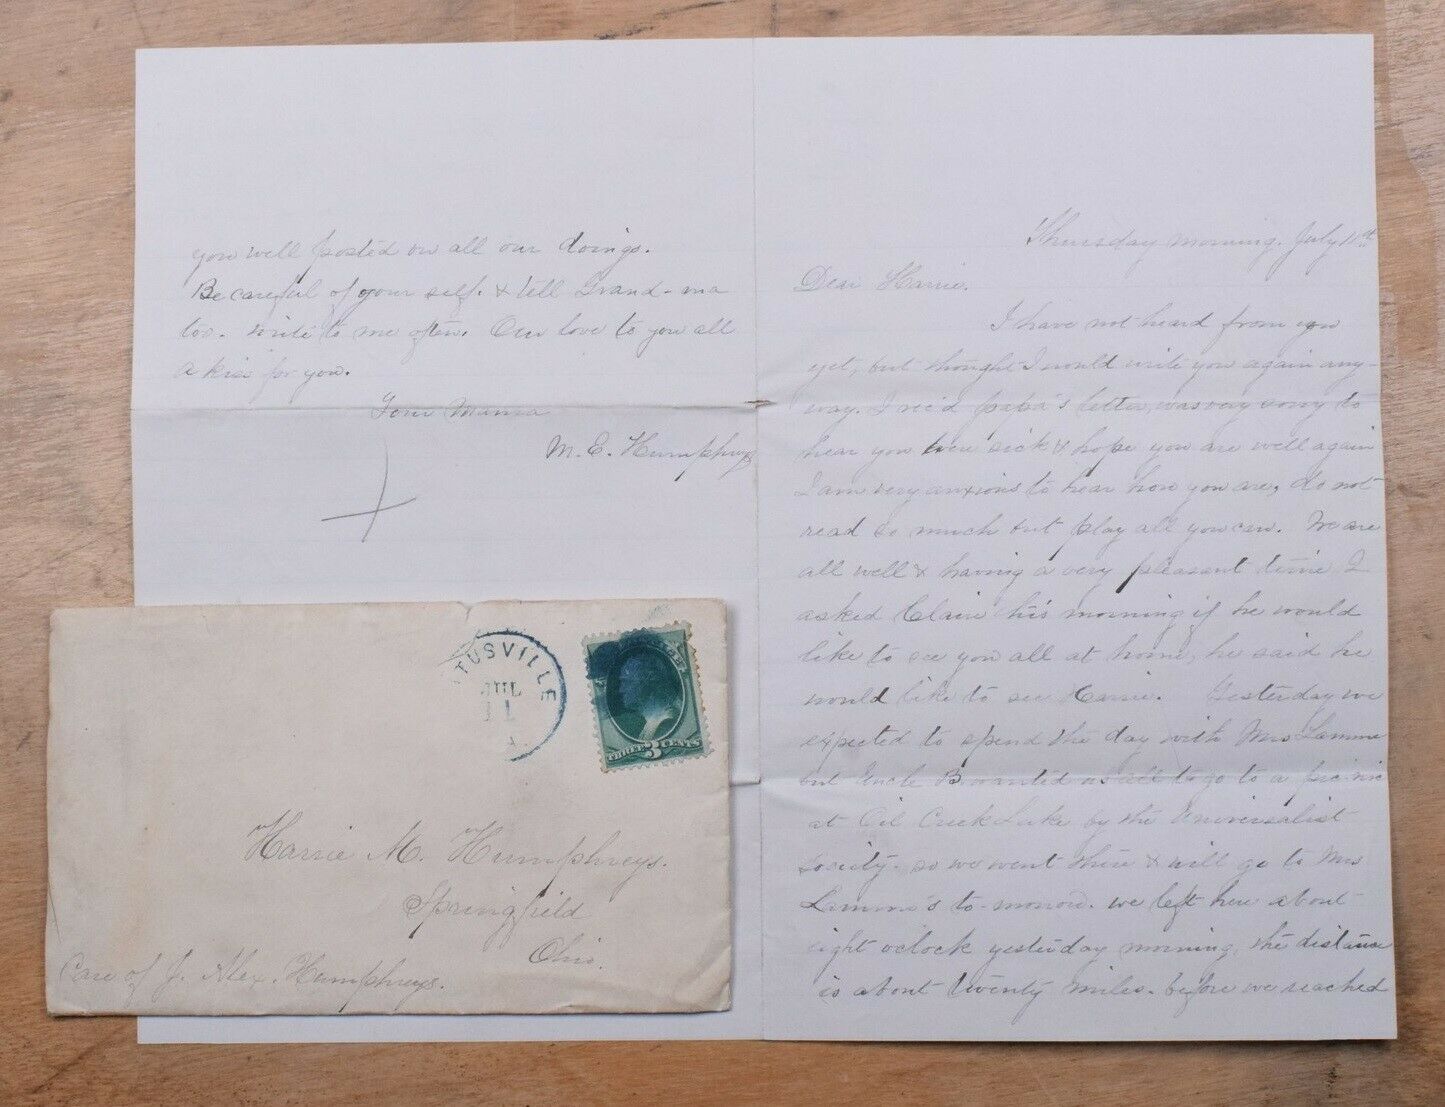 Thursday morning. July 11th
Dear Harrie.
I have not heard from you
yet, but thought I would write you again any-
way. I rec'd papa's letter, was very sorry to
hear you were sick & hope you are well again
I am very anxious to hear how you are, do not
read so much but play all you can. We are
all well & having a very pleasant time I
asked Claire this morning if he would
like to see you all at home, he said he
would like to see Harrie. Yesterday we
expected to spend the day with Mrs Lamme
but Uncle B. wanted us all to go to a pic-nic
at Oil Creek Lake by the Universalist
society. so we went there & will go to Mrs
Lamme's to-morrow. we left here about
eight o'clock yesterday morning, the distance
is about twenty miles. before we reached
you well posted on all our doings.
Be careful of your self. & tell Grand-ma
too. write to me often. Our love to you all
a kiss for you.
Your Mama
M. E. Humphreys
TUSVILLE
JUL
11
THREE 3 CENTS
Harrie M. Humphreys.
Springfield
Ohio.
Care of J. Alex. Humphreys.